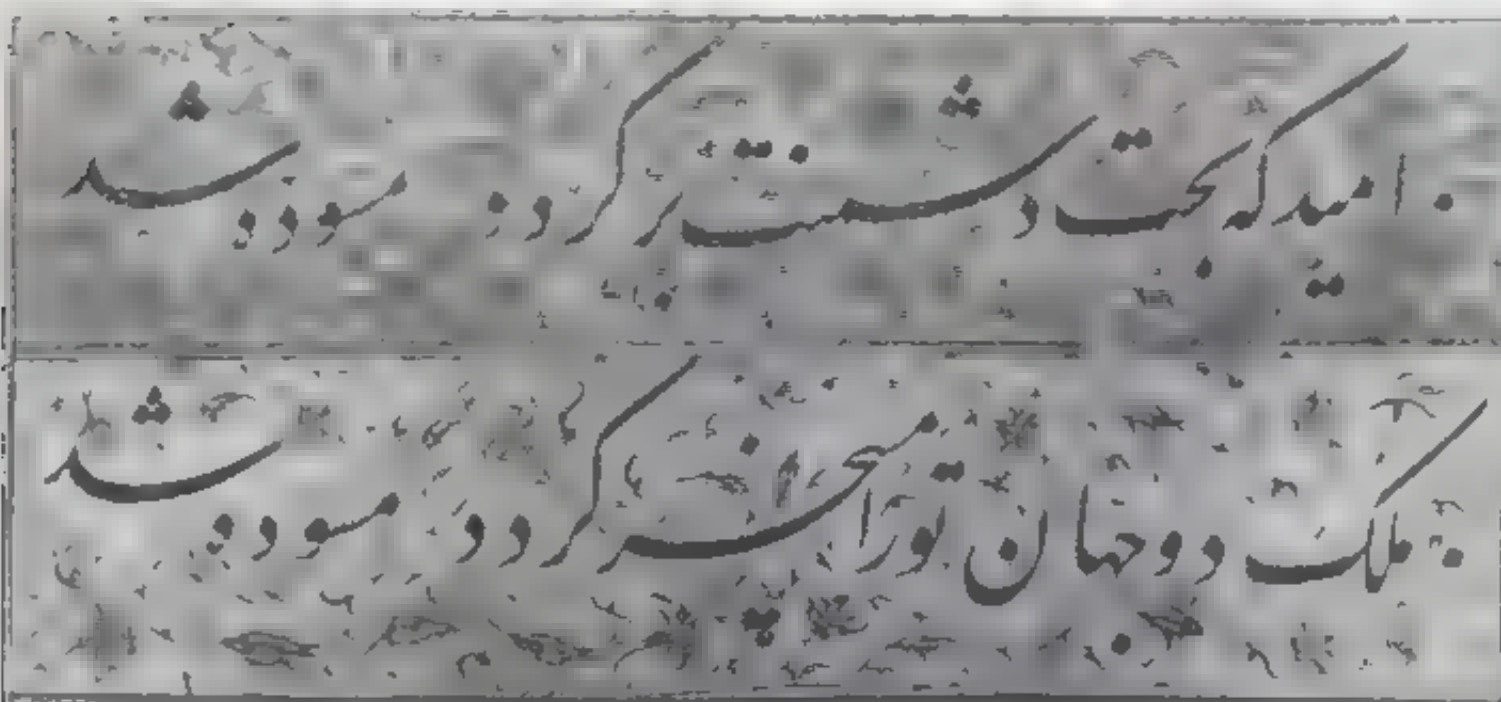 امید که بخت دشمنت بر گردد مسوده شد
ملک دو جهان تو را مسخر گردد مسوده شد